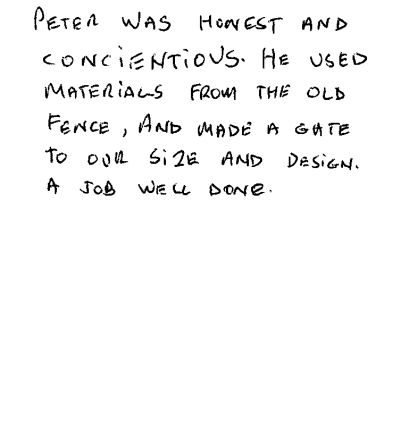 PETER WAS HONEST AND
CONCIENTIOUS. HE USED
MATERIALS FROM THE OLD
FENCE, AND MADE A GATE
TO OUR SIZE AND DESIGN.
A JOB WELL DONE.